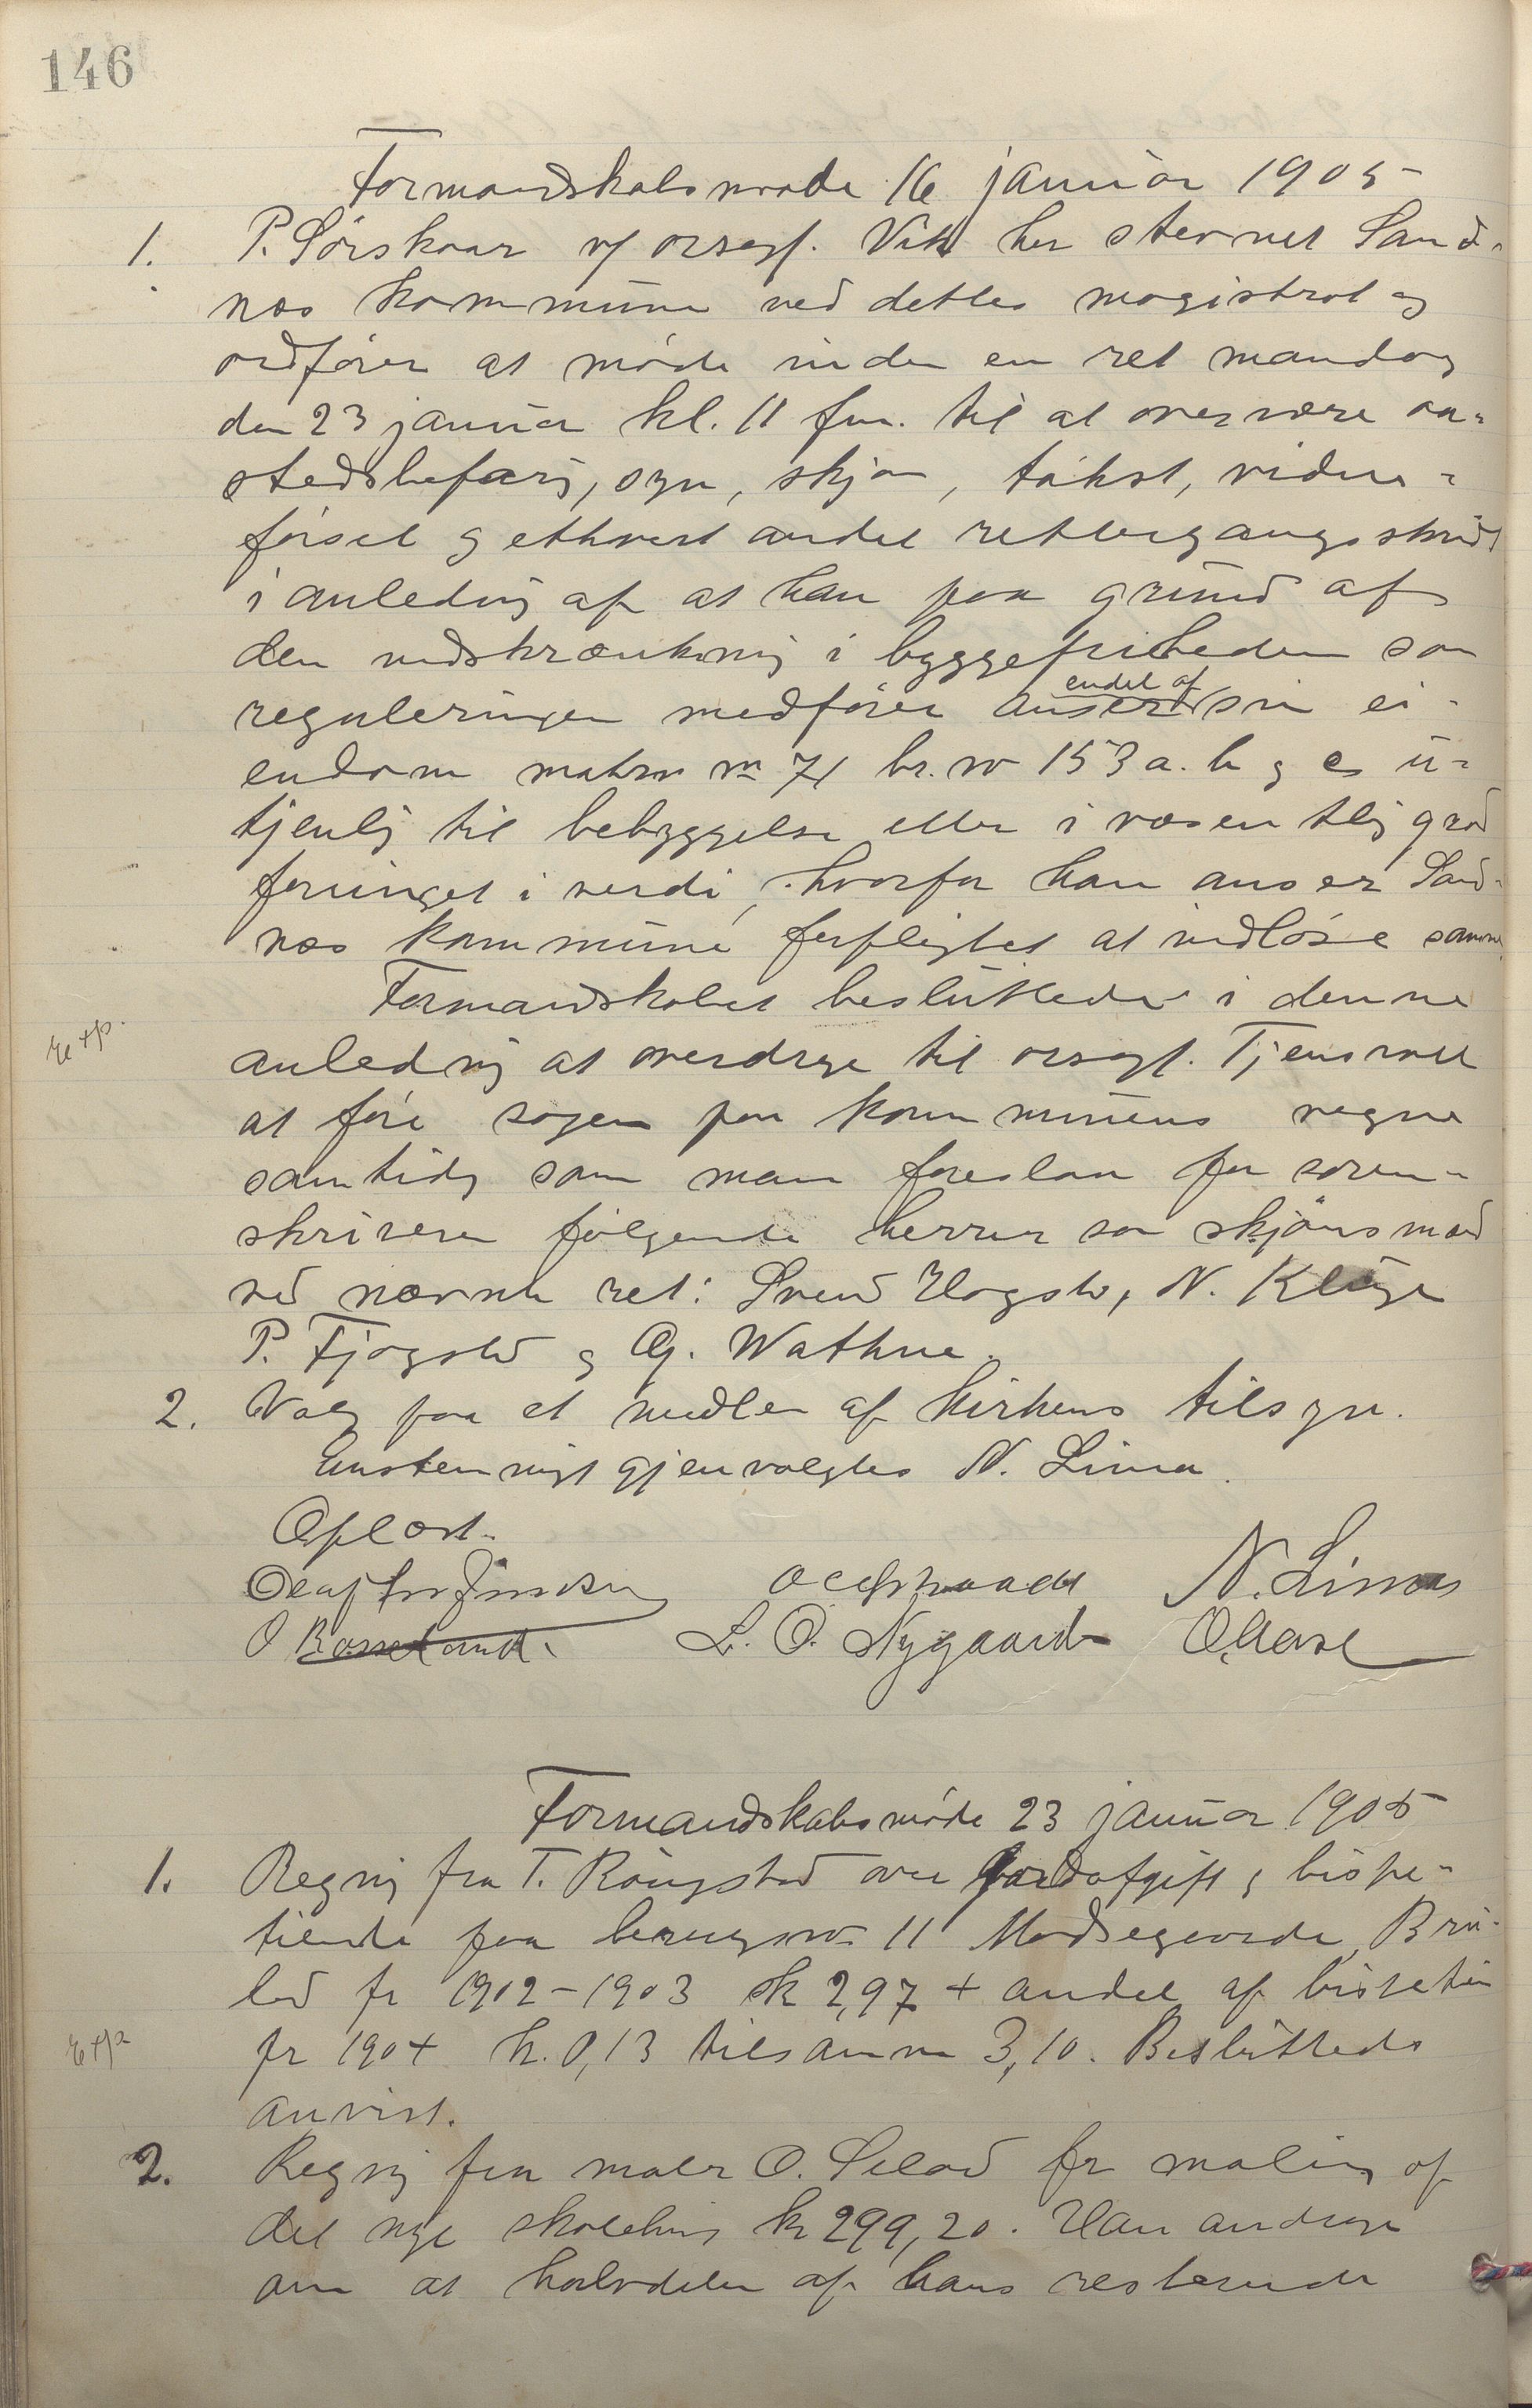 146
Formandskabsmøde 16 januar 1905
1. P. Sørskaar v/ orsagf. Vik har stevnet Sand-
næs kommune ved dettes magistrat og
ordfører at møde inden en ret mandag
den 23 januar kl. 11 fm. til at overvære aa-
stedsbefaring, syn, skjøn, takst, vidne-
førsel og ethvert andet rettergangsskridt
i anledning af at han paa grund af
den indskrænkning i byggefriheden som
reguleringen medfører anser endel af sin ei-
endom matr. nr 71 br. no 153 a. b og c u-
tjenlig til bebyggelse eller i væsentlig grad
forringet i verdi, hvorfor han anser Sand-
næs kommune forpligtet at indløse samme.
Formandskabet besluttede i denne
Exp.
anledning at overdrage til orsagf. Tjensvold
at føre sagen paa kommunens vegne
samtidig som man foreslaar for soren-
skriveren følgende herrer som skjønsmænd
ved nævnte ret: Svend Hogstad, N. Kluge
P. Fjogstad og G. Wathne.
2. Valg paa et medlem af kirkens tilsyn.
Enstemmigt gjenvalgtes N. Lima.
Oplæst.
N. Lima
O Rosseland. L. O. Nygaard O. Aase
Formandskabsmøde 23 januar 1905
1. Regning fra T. Ringstad over jordafgift og bispe-
tiende paa brugsno 11 Madsegeorde, Brue-
land for 1902-1903 kr 2,97 + andel af bispetiende
Exp.
for 1904 kr. 0,13 tilsammen 3,10. Besluttedes
anvist.
2. Regning fra maler O. Selad for maling af
det nye skolehus kr 299,20. Han androg
om at halvdelen af hans resterende